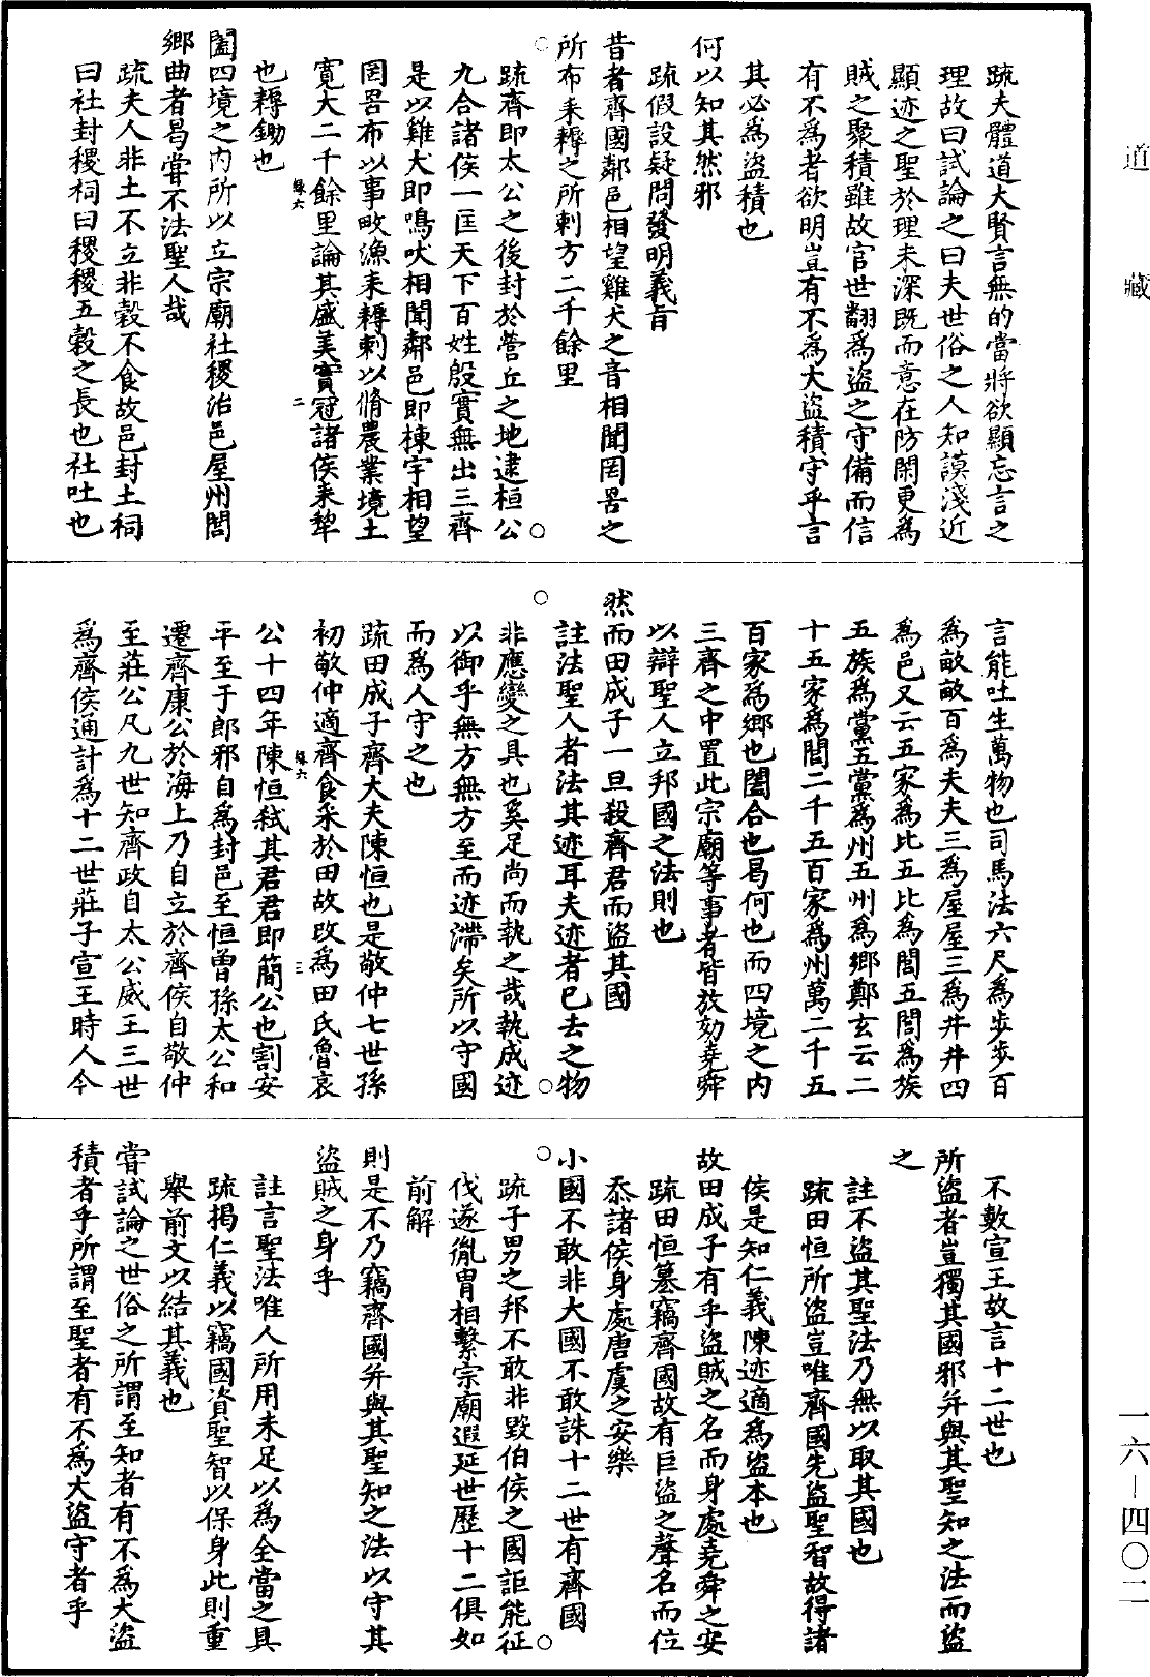 疏夫體道大賢言無的當將欲顯忘言之
理故曰試論之曰夫世俗之人知謨淺近
顯迹之聖於理未深既而意在防閑更為
賊之聚積雖故官世翻為盜之守備而信
有不為者欲明豈有不為大盜積守乎言
其必為盜積也
何以知其然邪
疏假設疑問發明義旨
昔者齊國鄰邑相望雞犬之音相聞罔罟之
所布耒耨之所刺方二千餘里
疏齊即太公之後封於營丘之地逮桓公
九合諸侯一匡天下百姓殷實無出三齊
是以雞犬即鳴吠相聞鄰邑即棟宇相望
罔罟布以事畋漁耒耨刺以脩農業境土
寬大二千餘里論其盛美實冠諸侯耒犂
也耨鋤也
闔四境之內所以立宗廟社稷治邑屋州閭
鄉曲者曷嘗不法聖人哉
疏夫人非土不立非穀不食故邑封土祠
曰社封稷祠曰稷稷五穀之長也社吐也
言能吐生萬物也司馬法六尺為步步百
為畝畝百為夫夫三為屋屋三為井井四
為邑又云五家為比五比為閭五閭為族
五族為黨五黨為州五州為鄉鄭玄云二
十五家為閭二千五百家為州萬二千五
百家為鄉也闔合也曷何也而四境之內
三齊之中置此宗廟等事者皆放効堯舜
以辯聖人立邦國之法則也
然而田成子一旦殺齊君而盜其國
註法聖人者法其迹耳夫迹者已去之物
非應變之具也奚足尚而執之哉執成迹
以御乎無方無方至而迹滯矣所以守國
而為人守之也
疏田成子齊大夫陳恒也是敬仲七世孫
初敬仲適齊食采於田故改為田氏魯哀
公十四年陳恒弒其君君即簡公也割安
平至于郎邪自為封邑至恒曾孫太公和
遷齊康公於海上乃自立於齊侯自敬仲
至莊公凡九世知齊政自太公威王三世
為齊侯通計為十二世莊子宣王時人今
不數宣王故言十二世也
所盜者豈獨其國邪并與其聖知之法而盜
之
註不盜其聖法乃無以取其國也
疏田恒所盜豈唯齊國先盜聖智故得諸
侯是知仁義陳迹適為盜本也
故田成子有乎盜賊之名而身處堯舜之安
疏田恒簒竊齊國故有巨盜之聲名而位
忝諸侯身處唐虞之安樂
小國不敢非大國不敢誅十二世有齊國
疏子男之邦不敢非毀伯侯之國詎能征
伐遂胤胄相繫宗廟遐延世歷十二俱如
前解
則是不乃竊齊國并與其聖知之法以守其
盜賊之身乎
註言聖法唯人所用未足以為全當之具
疏揭仁義以竊國資聖智以保身此則重
舉前文以結其義也
嘗試論之世俗之所謂至知者有不為大盜
積者乎所謂至聖者有不為大盜守者乎
道藏
一六—四〇二